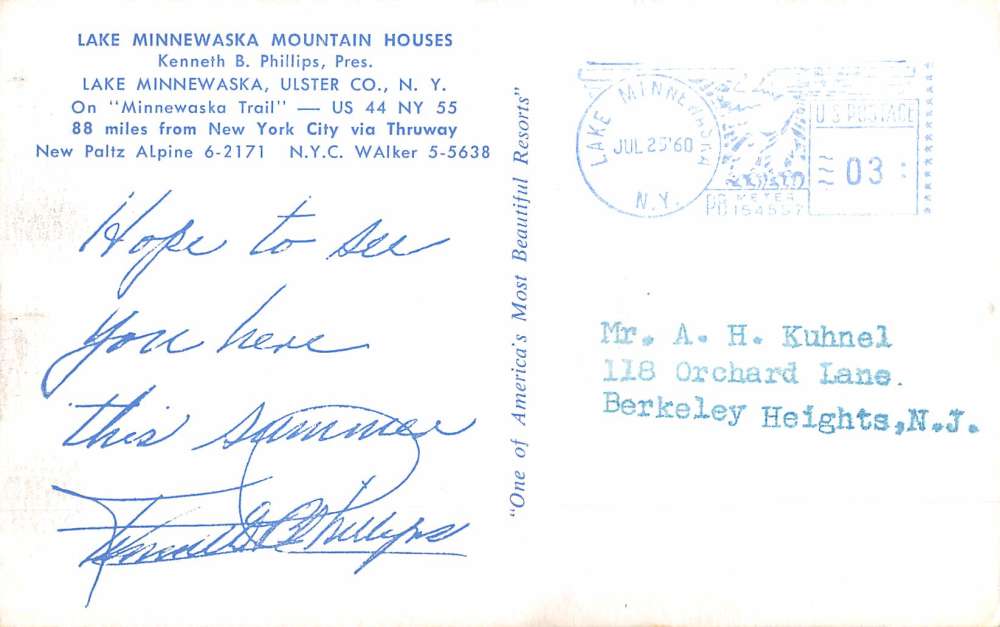 LAKE MINNEWASKA MOUNTAIN HOUSES
Kenneth B. Phillips, Pres.
LAKE MINNEWASKA, ULSTER CO., N. Y.
On "Minnewaska Trail" — US 44 NY 55
88 miles from New York City via Thruway
New Paltz ALpine 6-2171 N.Y.C. WAlker 5-5638
Hope to see
you here
this summer
Kenneth B Phillips
"One of America's Most Beautiful Resorts"
LAKE MINNEWASKA
JUL 25 '60
N.Y.
U.S. POSTAGE
03
PB METER
154557
Mr. A. H. Kuhnel
118 Orchard Lane.
Berkeley Heights,N.J.